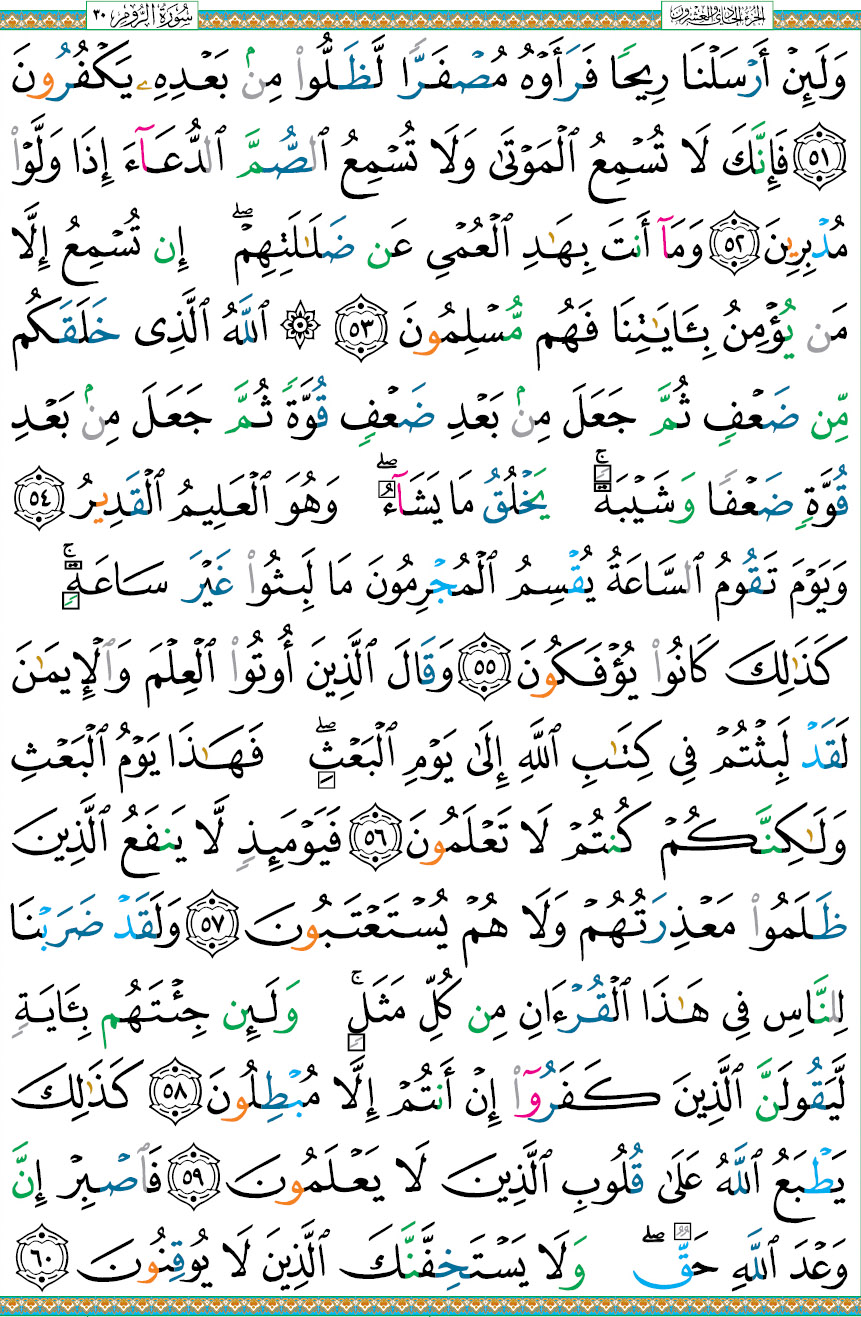 الجزء الحادي والعشرون
سُورَةُ الرُّومِ ٣٠
وَلَئِنْ أَرْسَلْنَا رِيحًا فَرَأَوْهُ مُصْفَرًّا لَّظَلُّوا۟ مِنۢ بَعْدِهِۦ يَكْفُرُونَ
٥١ فَإِنَّكَ لَا تُسْمِعُ ٱلْمَوْتَىٰ وَلَا تُسْمِعُ ٱلصُّمَّ ٱلدُّعَآءَ إِذَا وَلَّوْا۟
مُدْبِرِينَ ٥٢ وَمَآ أَنتَ بِهَـٰدِ ٱلْعُمْىِ عَن ضَلَـٰلَتِهِمْ ۖ إِن تُسْمِعُ إِلَّا
مَن يُؤْمِنُ بِـَٔايَـٰتِنَا فَهُم مُّسْلِمُونَ ٥٣ ۞ ٱللَّهُ ٱلَّذِى خَلَقَكُم
مِّن ضَعْفٍ ثُمَّ جَعَلَ مِنۢ بَعْدِ ضَعْفٍ قُوَّةً ثُمَّ جَعَلَ مِنۢ بَعْدِ
قُوَّةٍ ضَعْفًا وَشَيْبَةً ۚ يَخْلُقُ مَا يَشَآءُ ۖ وَهُوَ ٱلْعَلِيمُ ٱلْقَدِيرُ ٥٤
وَيَوْمَ تَقُومُ ٱلسَّاعَةُ يُقْسِمُ ٱلْمُجْرِمُونَ مَا لَبِثُوا۟ غَيْرَ سَاعَةٍ ۚ
كَذَٰلِكَ كَانُوا۟ يُؤْفَكُونَ ٥٥ وَقَالَ ٱلَّذِينَ أُوتُوا۟ ٱلْعِلْمَ وَٱلْإِيمَـٰنَ
لَقَدْ لَبِثْتُمْ فِى كِتَـٰبِ ٱللَّهِ إِلَىٰ يَوْمِ ٱلْبَعْثِ ۖ فَهَـٰذَا يَوْمُ ٱلْبَعْثِ
وَلَـٰكِنَّكُمْ كُنتُمْ لَا تَعْلَمُونَ ٥٦ فَيَوْمَئِذٍ لَّا يَنفَعُ ٱلَّذِينَ
ظَلَمُوا۟ مَعْذِرَتُهُمْ وَلَا هُمْ يُسْتَعْتَبُونَ ٥٧ وَلَقَدْ ضَرَبْنَا
لِلنَّاسِ فِى هَـٰذَا ٱلْقُرْءَانِ مِن كُلِّ مَثَلٍ ۚ وَلَئِن جِئْتَهُم بِـَٔايَةٍ
لَّيَقُولَنَّ ٱلَّذِينَ كَفَرُوٓا۟ إِنْ أَنتُمْ إِلَّا مُبْطِلُونَ ٥٨ كَذَٰلِكَ
يَطْبَعُ ٱللَّهُ عَلَىٰ قُلُوبِ ٱلَّذِينَ لَا يَعْلَمُونَ ٥٩ فَٱصْبِرْ إِنَّ
وَعْدَ ٱللَّهِ حَقٌّ ۖ وَلَا يَسْتَخِفَّنَّكَ ٱلَّذِينَ لَا يُوقِنُونَ ٦٠